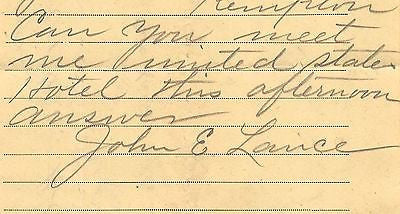 Kempton
Can you meet
me united states
Hotel this afternoon
answer
John E Lance